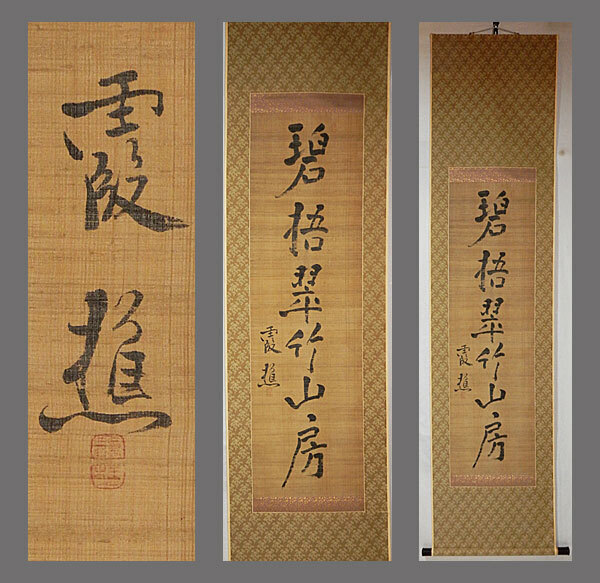 霞樵
碧梧翠竹山房
霞樵
碧梧翠竹山房
霞樵